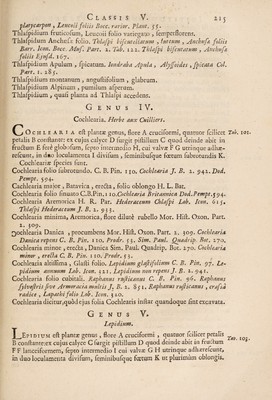 CLASSIS V. 215
platycarpon, Leucoii foliis Bocc. rarior. Plant. 55.
Thlaspidium fruticosum, Leucoii folio variegato, semperflorens.
Thlaspidium Anchusæ folio. Thlaspi biscutatum, luteum, Anchusæ foliis
Barr. Icon. Bocc. Mus. Part. 2. Tab. 122. Thlaspi biscutatum, Anchusæ
foliis Ejusd. 167.
Thlaspidium Apulum, spicatum. Iondraba Apula, Alyssoides, spicata Col.
Part. 1. 285.
Thlaspidium montanum, angustifolium, glabrum.
Thlaspidium Alpinum, pumilum asperum.
Thlaspidium, quasi planta ad Thlaspi accedens.
GENUS IV.
Cochlearia. Herbe aux Cuilliers.
COCHLEARIA est plantæ genus, flore A cruciformi, quatuor scilicet Tab. 101.
petalis B constante: ex cujus calyce D surgit pistillum C quod deinde abit in
fructum E ferè globosum, septo intermedio H, cui valvæ F G utrinque adhæ-
rescunt, in duo loculamenta I divisum, seminibusque fœtum subrotundis K.
Cochleariæ species sunt.
Cochlearia folio subrotundo. C. B. Pin. 110. Cochlearia J. B. 2. 942. Dod.
Pempt. 594.
Cochlearia major, Batavica, erecta, folio oblongo H. L. Bat.
Cochlearia folio sinuato C.B.Pin. 110. Cochlearia Britannica Dod. Pempt. 594.
Cochlearia Aremorica H. R. Par. Hederaceum Thlaspi Lob. Icon. 615.
Thlaspi hederaceum J. B. 2. 933.
Cochlearia minima, Aremorica, flore dilutè rubello Mor. Hist. Oxon. Part.
2. 309.
Cochlearia Danica, procumbens Mor. Hist. Oxon. Part. 2. 309. Cochlearia
Danica repens C. B. Pin. 110. Prodr. 55. Sim. Paul. Quadrip. Bot. 270.
Cochlearia minor, erecta, Danica Sim. Paul. Quadrip. Bot. 270. Cochlearia
minor, erecta C. B. Pin. 110. Prodr. 55.
Cochlearia altissima, Glasti folio. Lepidium glastifolium C. B. Pin. 97. Le-
pidium annuum Lob. Icon. 321. Lepidium non repens J. B. 2. 941.
Cochlearia folio cubitali. Raphanus rusticanus C. B. Pin. 96. Raphanus
sylvestris sive Armoracia multis J. B. 2. 851. Raphanus rusticanus, crassâ
radice, Lapathi folio Lob. Icon. 320.
Cochlearia dicitur, quòd ejus folia Cochlearis instar quandoque sint excavata.
GENUS V.
Lepidium.
LEPIDIUM est plantæ genus, flore A cruciformi, quatuor scilicet petalis Tab. 103.
B constante: ex cujus calyce C surgit pistillum D quod deinde abit in fructum
F F lanceiformem, septo intermedio I cui valvæ G H utrinque adhærescunt,
in duo loculamenta divisum, seminibusque fœtum K ut plurimùm oblongis.